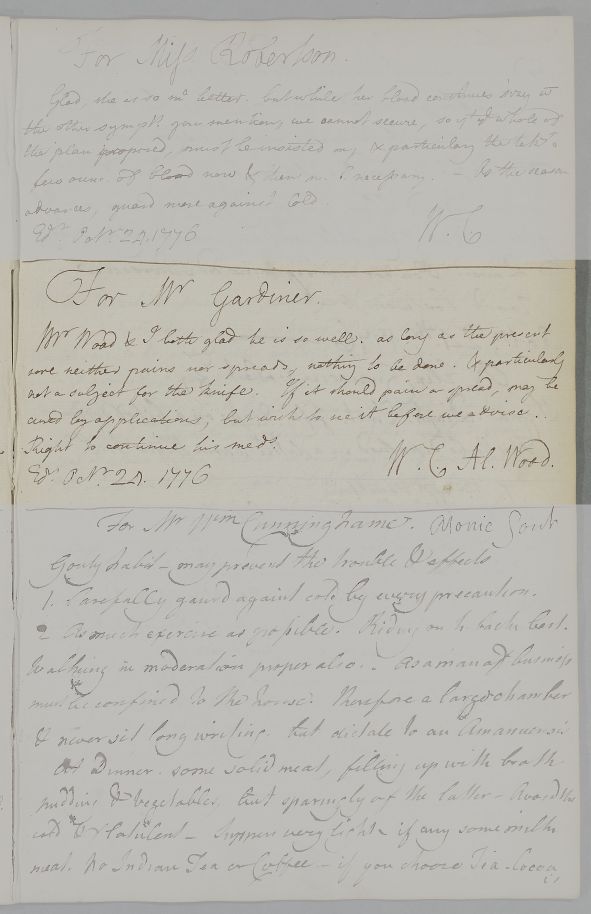 For Miſs Robertson.
Glad, she is so mh better. but while her blood continues sizey &
the other sympts. you mention, we cannot secure, so yt ye whole of
the plan proposed, must be insisted on, & particularly the takg. a
few ounc. of blood now & then m. b necessary. — As the season
advances, guard more against cold.
Edr. Octr. 24. 1776 W. C
For Mr Gardiner.
Mr Wood & I both glad he is so well. as long as the present
sore neither pains nor spreads, nothing to be done. & particularly
not a subject for the knife. If it should pain or spread, may be
cured by applications, but wish to see it before we advise..
Right to continue his meds.
Edr. Octr. 24. 1776 W. C Al. Wood.
For Mr Wm Cunninghame. Atonic Gout
Gouty habit — may prevent the trouble & effects
1. Carefully gaurd against cold by every precaution.
2 As much exercise as poſsible. Riding on h. back best.
Walking in moderation proper also.. As a man of business
must be confined to the house. Therefore a large chamber
& never sit long writing, but dictate to an Amanuensis
At Dinner. some solid meat, filling up with broth
pudding & vegetables, but sparingly of the latter — Avoid the
cold & flatulent — Suppers very light, if any some milk
meat. No Indian Tea or Coffee — if you choose Tea. Cocoa
is